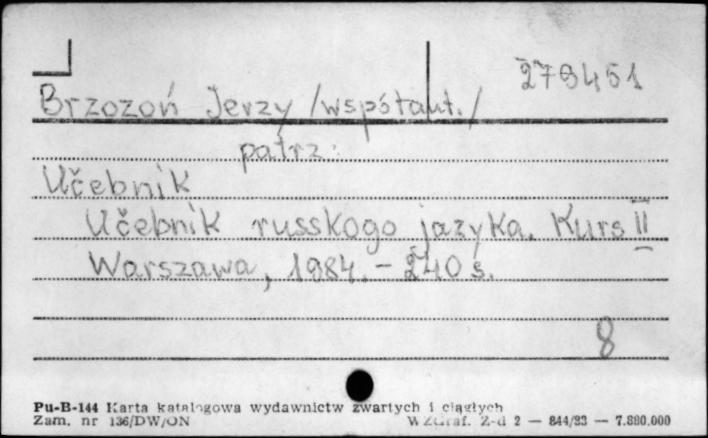 279451
Brzozoń Jerzy /współaut./
patrz:
Učebnik
Učebnik russkogo jazyka. Kurs II
Warszawa, 1984. - 240 s.
8
Pu-B-144 Karta katalogowa wydawnictw zwartych i ciągłych
Zam. nr 136/DW/ON WZGraf. Z-d 2 — 844/83 — 7.880.000